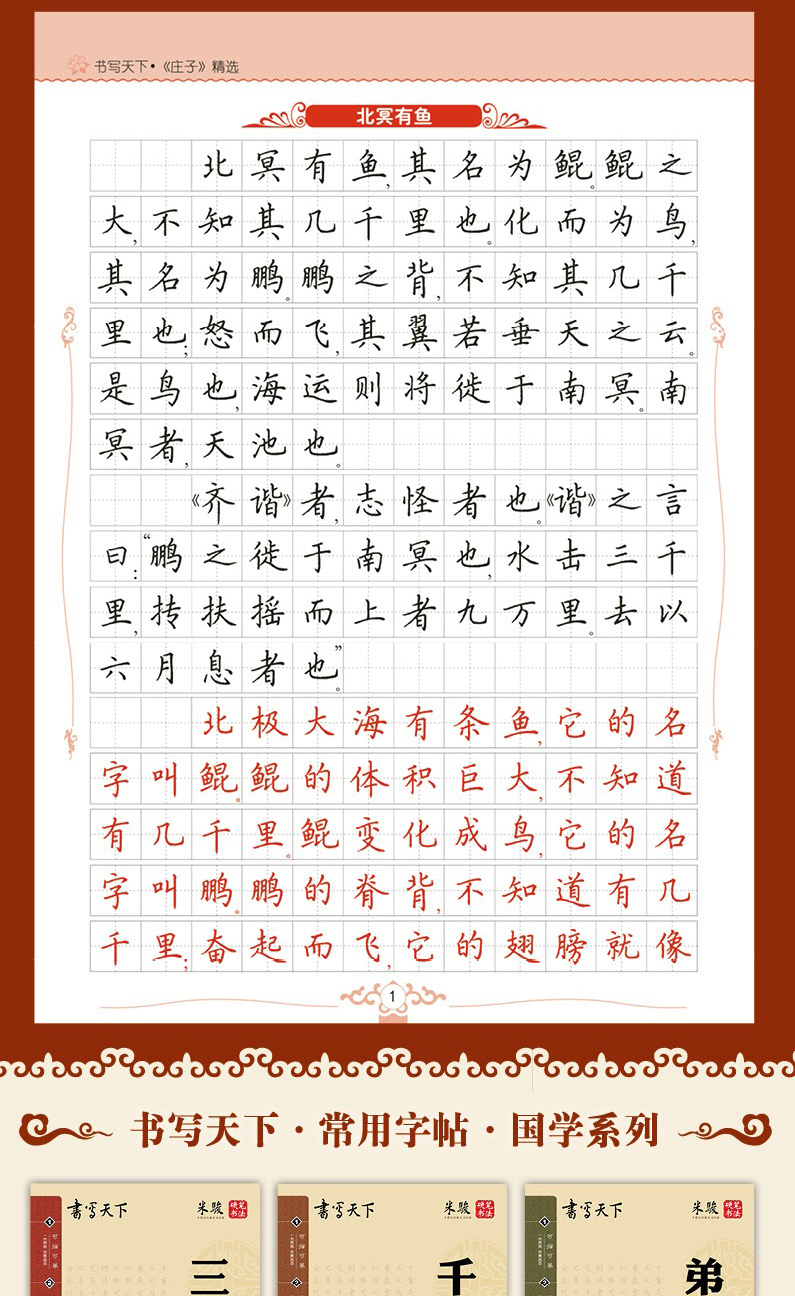 书写天下•《庄子》精选
北冥有鱼
北冥有鱼,其名为鲲。鲲之
大,不知其几千里也。化而为鸟,
其名为鹏。鹏之背,不知其几千
里也;怒而飞,其翼若垂天之云。
是鸟也,海运则将徙于南冥。南
冥者,天池也。
《齐谐》者,志怪者也。《谐》之言
曰:“鹏之徙于南冥也,水击三千
里,抟扶摇而上者九万里。去以
六月息者也”。
北极大海有条鱼,它的名
字叫鲲。鲲的体积巨大,不知道
有几千里。鲲变化成鸟,它的名
字叫鹏。鹏的脊背,不知道有几
千里;奋起而飞,它的翅膀就像
1
书写天下·常用字帖·国学系列
書写天下 米骏 硬笔书法
三
書写天下 米骏 硬笔书法
千
書写天下 米骏 硬笔书法
弟